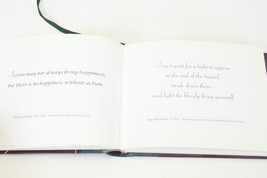 Action may not always bring happiness,
but there is no happiness without action.
Don't wait for a light to appear
at the end of the tunnel,
stride down there...
and light the bloody thing yourself.